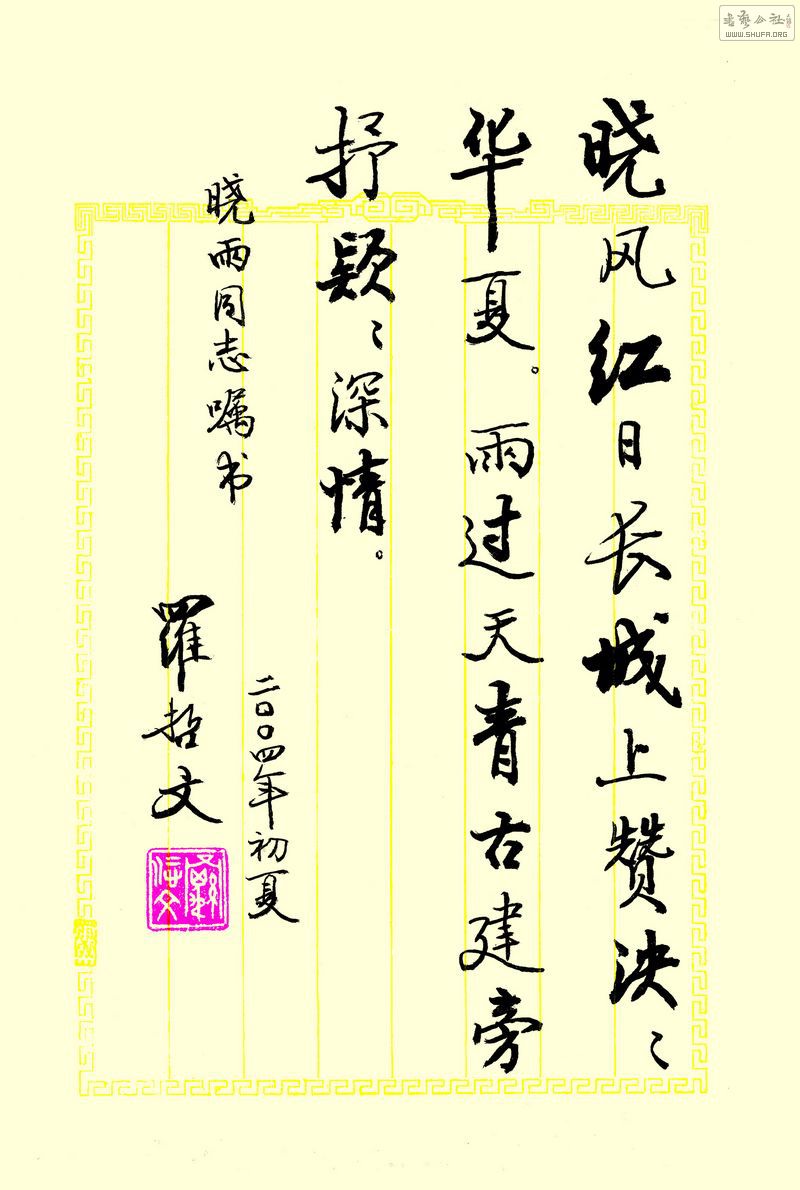 晓风红日长城上赞泱〻
华夏。雨过天青古建旁
抒欵〻深情。
晓雨同志嘱书
二〇〇四年初夏
羅哲文
書藝公社
WWW.SHUFA.ORG